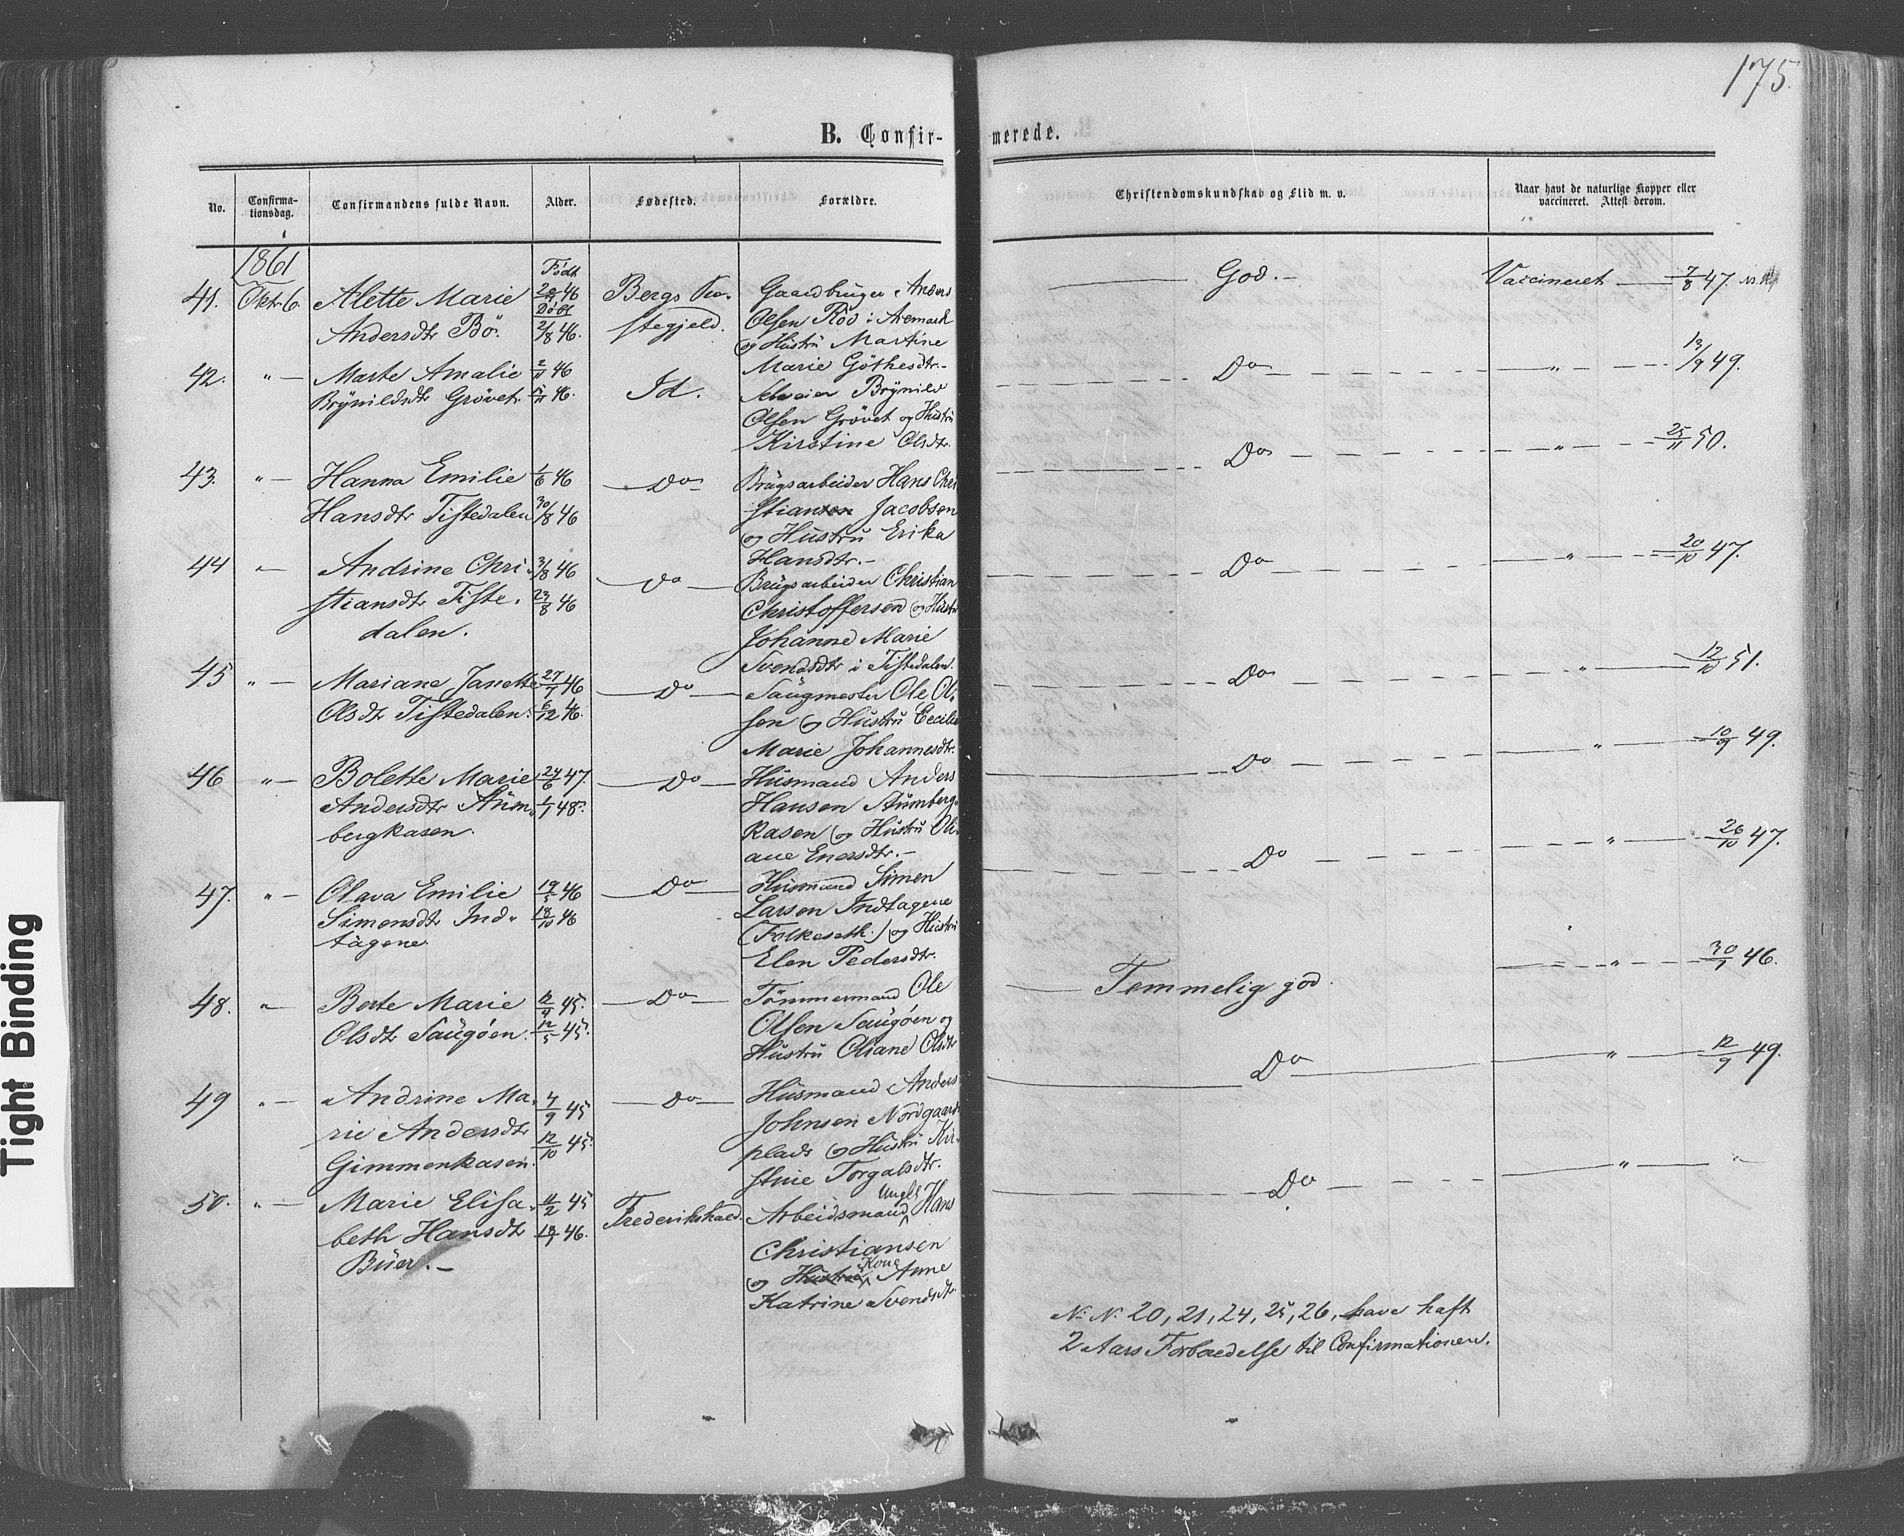 175
B. Confir- merede.
No. Confirma-tionsdag. Confirmandens fulde Navn. Alder. Fødested. Forældre. Christendomskundskab og Flid m. v. Naar havt de naturlige Kopper eller vaccineret. Attest derom.
1861 Født
41. Oktr 6. Alette Marie 46 Bergs Præ- Gaardbruger Anders God. Vaccineret 7/8 47.
Døbt
Andersdtr Bö. 2/8 46. stegjeld. Olsen Röd i Aremark
og Hustru Martine
42. " Marte Amalie 46 Id. Marie Göthesdtr. Do " 13/9 49.
Brynildsdtr Grövet 46. Brynild
Olsen Grövet og Hustru
Kirstine Olsdtr.
43. " Hanna Emilie 1/6 46 Do Brugsarbeider Hans Chri Do " 25/11 50.
Hansdtr Tistedalen 30/8 46 stiansen Jacobsen
og Hustru Erika
Hansdtr.
44 " Andrine Chri 3/8 46 Do Brugsarbeider Christian Do " 20/10 47.
stiansdtr Tiste- 23/8 46 Christoffersen og Hustru
dalen. Johanne Marie
Svendsdtr i Tistedalen.
45 " Mariane Janette 27/7 46 Do Saugmester Ole Ol- Do " 12/10 51.
Olsdtr Tistedalen. 6/12 46. sen og Hustru Cecilie
Marie Johannesdtr.
46 " Bolette Marie 24/6 47. Do Husmand Anders Do " 10/9 49.
Andersdtr Stum- 1/1 48. Hansen Stumberg-
bergkasen. kasen og Hustru Oli-
ane Enersdtr.
47. " Olava Emilie 19/5 46 Do Husmand Simen Do " 26/10 47.
Simensdtr Ind- 18/10 46 Larsen Indtagene
tagene. (Folkeseth.) og Hustru
Elen Pedersdtr.
48. " Berte Marie 45. Do Tömmermand Ole Temmelig god. " 30/7 46.
Olsdtr Saugöen. 12/5 45. Olsen Saugöen og
Hustru Oliane Olsdtr
49 " Andrine Ma- 4/9 45 Do Husmand Anders Do " 12/9 49.
rie Andersdtr 12/10 45. Johnsen Nordgaards
Gimmenkasen. plads og Hustru Kir-
stine Torgalsdtr.
50. " Marie Elisa- 11/2 45 Frederikshald. Arbeidsmand Ungk. Hans Do " "
beth Hansdtr 18/1 46. Christiansen
Buer. og Hustru Kone Anne
Katrine Svendsdtr.
N. N. 20, 21, 24, 25, 26, have haft
2 Aars Forberedelse til Confirmationen.
Tight Binding